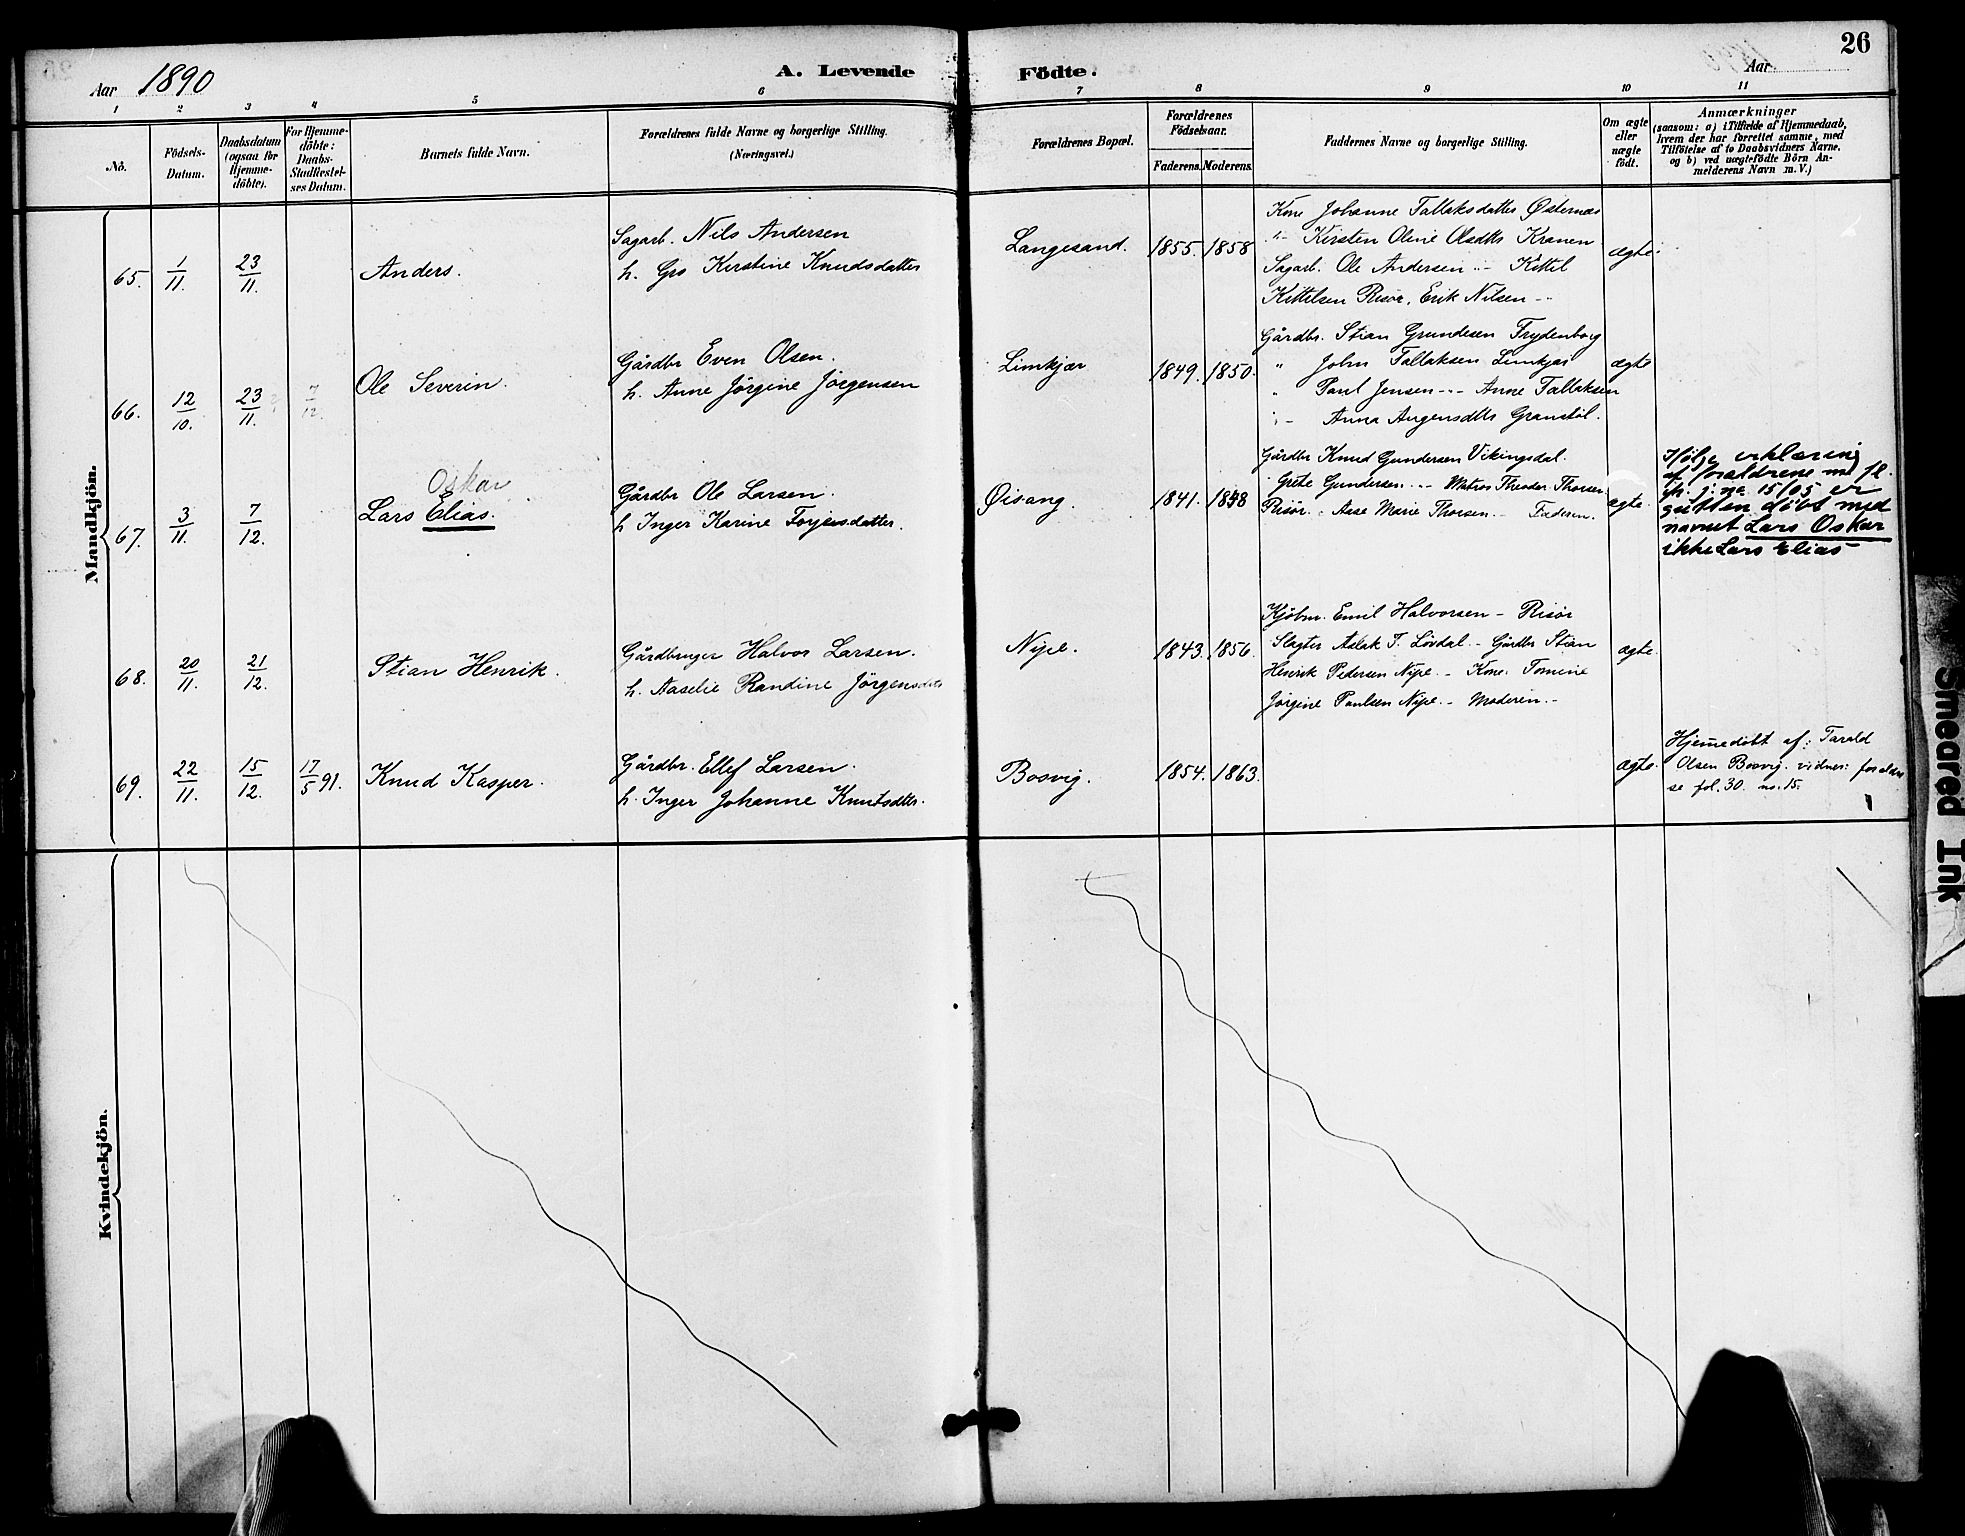 26
Aar 1890
A. Levende Födte.
Aar
1 2 3 4 5 6 7 8 9 10 11
No.
Födsels-Datum.
Daabsdatum (ogsaa for Hjemme-döbte).
For Hjemme-döbte: Daabs-Stadfæstel-ses Datum.
Barnets fulde Navn.
Forældrenes fulde Navne og borgerlige Stilling.
(Næringsvei.)
Forældrenes Bopæl.
Forældrenes Födselsaar.
Faderens. Moderens.
Faddernes Navne og borgerlige Stilling.
Om ægte eller uægte født.
Anmærkninger
(saasom: a) i Tilfælde af Hjemmedaab,
hvem der har forrettet samme, med
Tilföielse af to Daabsvidners Navne,
og b) ved uægtefödte Börn An-
melderens Navn m. V.)
Mandkjön.
65. 1/11 23/11. Anders.
Sagarb. Nils Andersen
h. Gro Kirstine Knudsdatter
Langesand. 1855. 1858
Kone Johanne Tallaksdatter Østernæs
"- Kirsten Oline Olsdtr Kranen
Sagarb. Ole Andersen "- Kittel
Kittelsen Risør. Erik Nilsen -"
ægte.
66. 12/10. 23/11. 7/12. Ole Severin.
Gårdbr Even Olsen.
h. Anne Jörgine Jörgensen
Limkjær 1849. 1850.
Gårdbr. Stian Grundesen Frydenborg
" John Tallaksen Limkjær
" Paul Jensen -"- Anne Tallaksen
"- Anna Augensdtr Granstøl.
ægte
67. 3/11. 7/12. Oskar
Lars Elias.
Gårdbr Ole Larsen.
h Inger Karine Torjusdatter.
Øisang. 1841. 1848
Gårdbr Knud Gundersen Vikingsdal.
Grete Gundersen "- Matros Theodor Thorsen
Risør. - Aase Marie Thorsen. - Faderen.
ægte.
Ifølge erklæring
af forældrene
15/05 er
gutten döbt med
navnet Lars Oskar
ikke Lars Elias
68. 20/11. 21/12. Stian Henrik.
Gårdbruger Halvor Larsen.
h. Aaselie Randine Jörgensdtr
Nipe. 1843. 1856.
Kjöbm. Emil Halvorsen - Risör
Slagter Aslak T. Lövdal. - Gårdbr Stian
Henrik Pedersen Nipe. - Kone. Tomine
Jörgine Paulsen Nipe. - Moderen. -
ægte.
69. 22/11. 15/12. 17/5 91. Knud Kasper.
Gårdbr. Ellef Larsen.
h. Inger Johanne Knutsdtr.
Bosvig. 1854. 1863.
ægte.
Hjemmedöbt af: Tarald
Olsen Bosvig. vidner: forældre
se fol. 30. no. 15.
Kvindekjön.
Smeared Ink